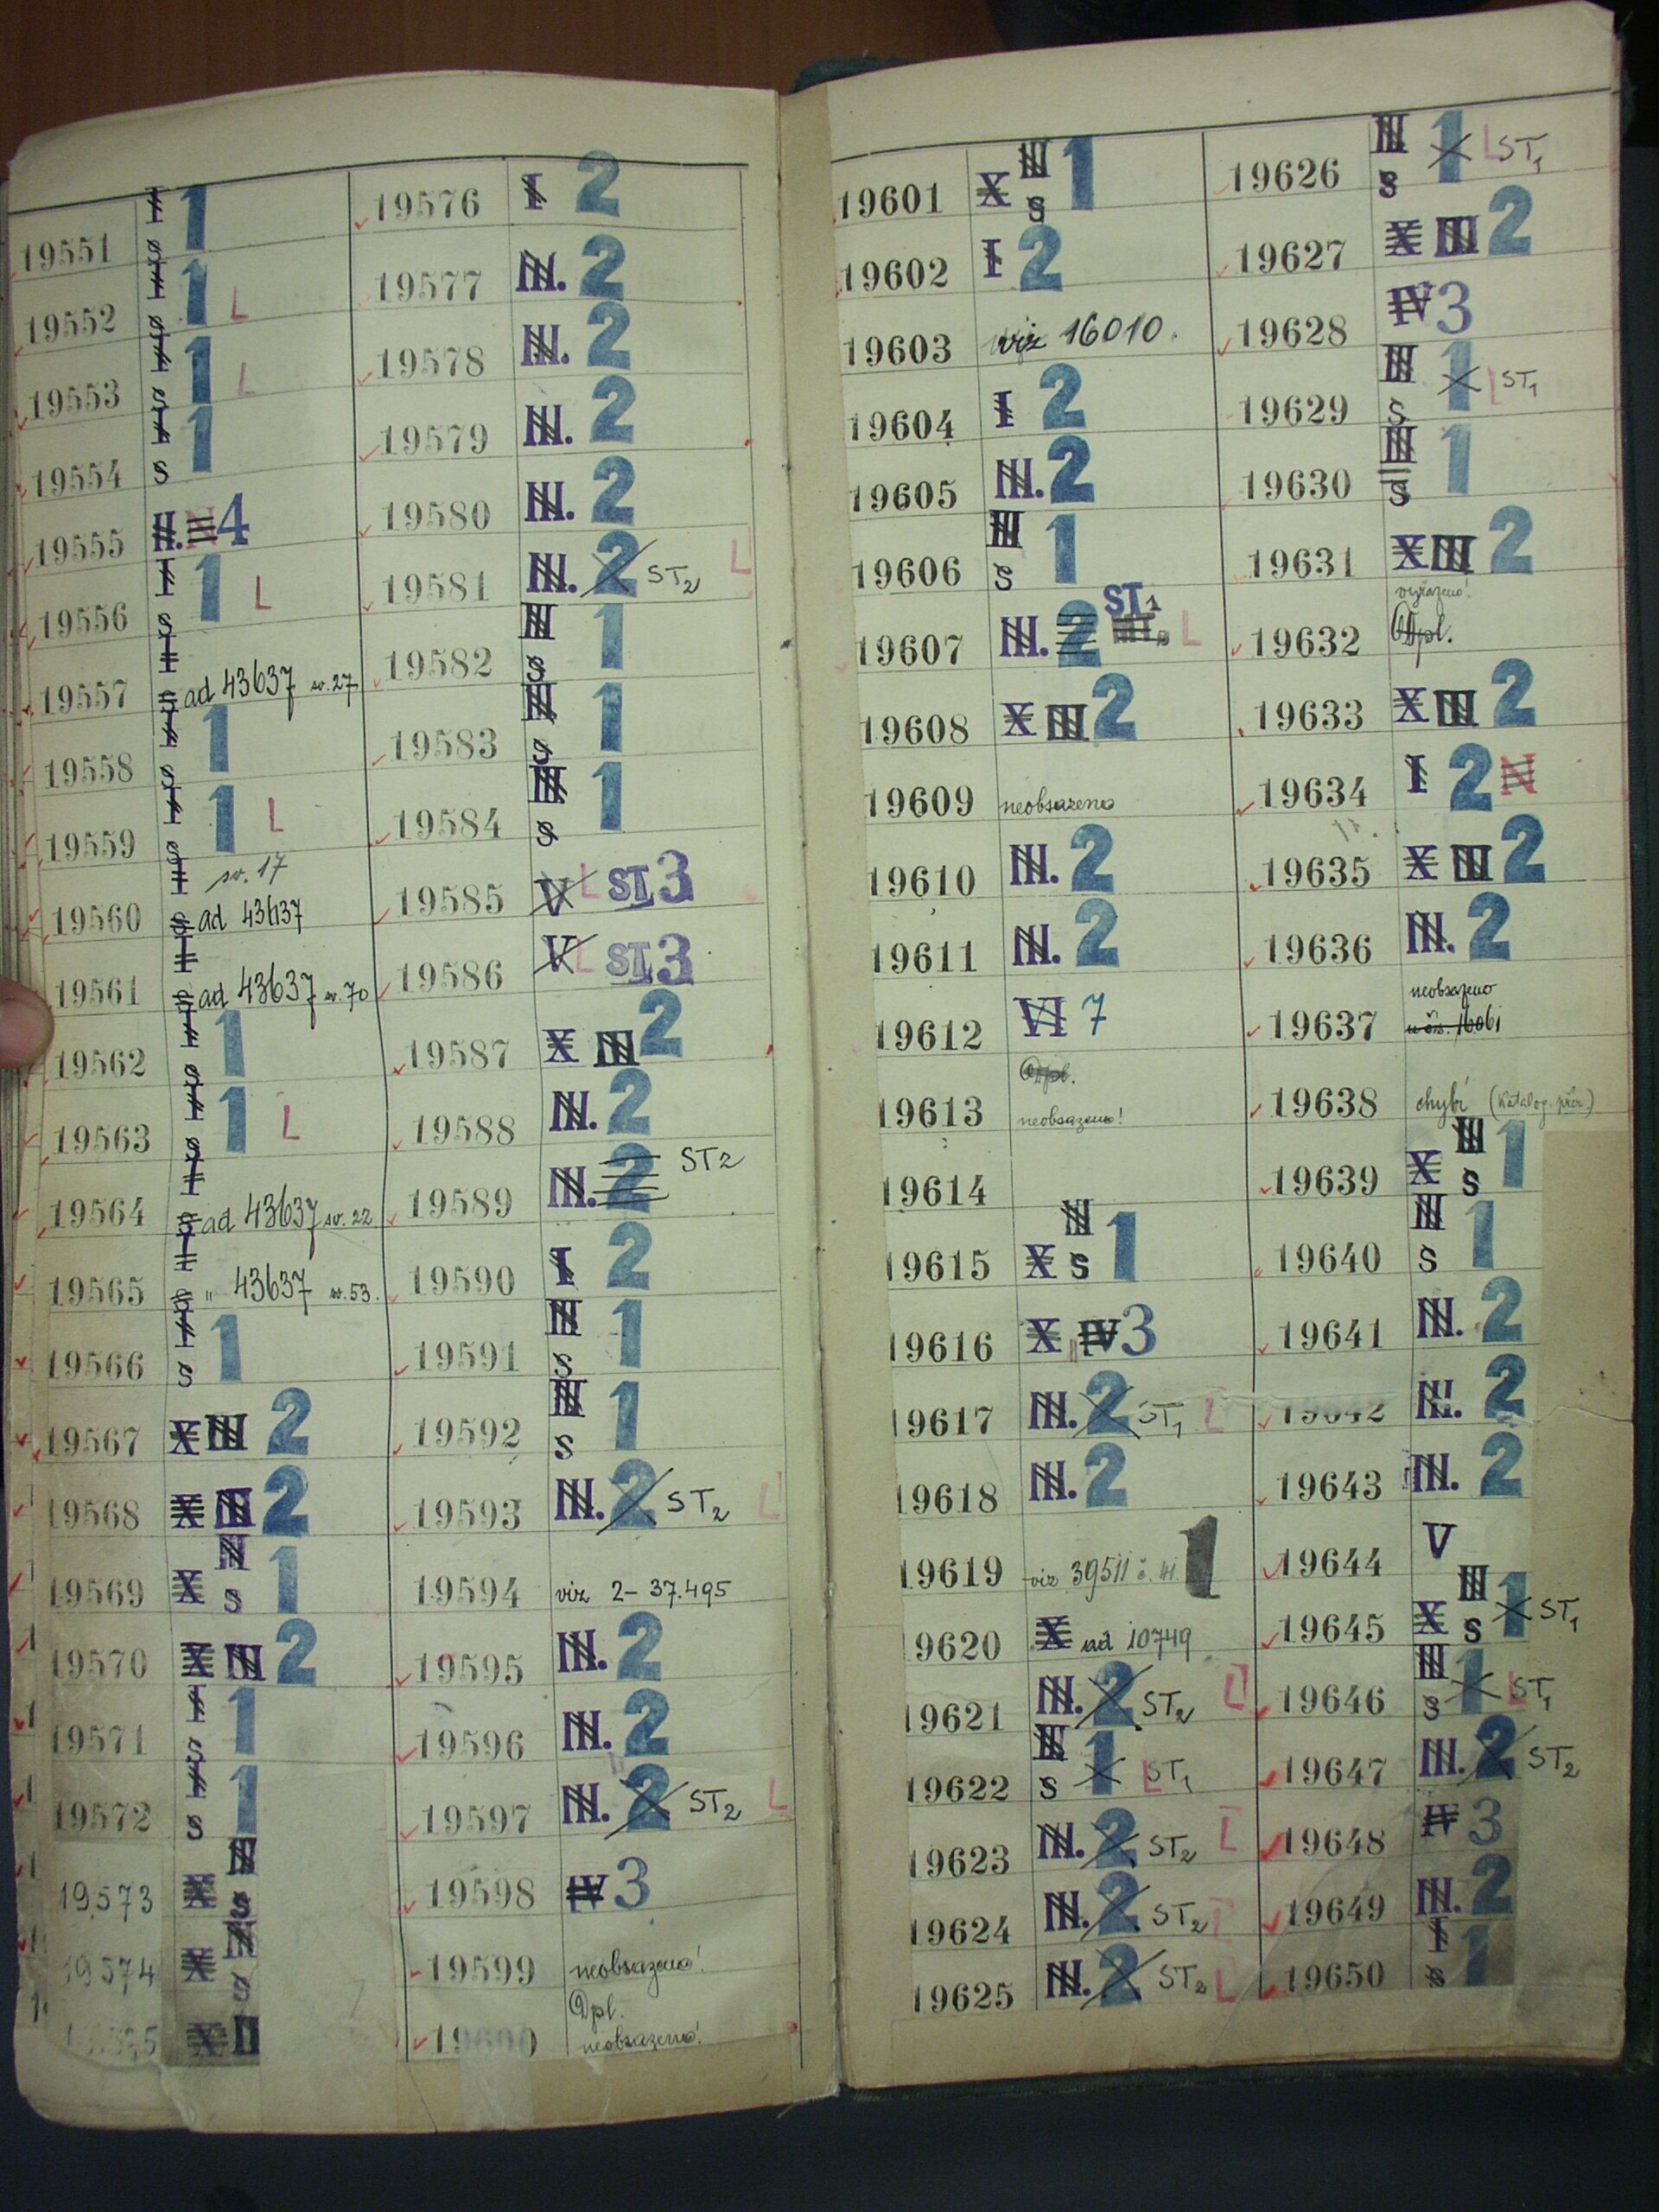 19551 I s 1
19552 I s 1 L
19553 I s 1 L
19554 I s 1
19555 II. N 4
19556 I s 1 L
19557 I s ad 43637 sv. 27
19558 I s 1
19559 I s 1 L
19560 I s sv. 17 ad 43637
19561 I s ad 43637 sv. 70
19562 I s 1
19563 I s 1 L
19564 I s ad 43637 sv. 22
19565 I s " 43637 sv. 53.
19566 I s 1
19567 X III 2
19568 X III 2
19569 X III s 1
19570 X III 2
19571 I s 1
19572 I s 1
19573 X III s
19574 X III s
X II
19576 I 2
19577 III. 2
19578 III. 2
19579 III. 2
19580 III. 2
19581 III. 2 ST2 L
19582 III s 1
19583 III s 1
19584 III s 1
19585 V L ST 3
19586 V L ST 3
19587 X III 2
19588 III. 2
19589 III. 2 ST2
19590 I 2
19591 III s 1
19592 III s 1
19593 III. 2 ST2 L
19594 viz 2-37.495
19595 III. 2
19596 III. 2
19597 III. 2 ST2 L
19598 IV 3
19599 neobsazeno!
19600 Dpl. neobsazeno!
19601 X III s 1
19602 I 2
19603 viz 16010.
19604 I 2
19605 III. 2
19606 III s 1
19607 III. 2 ST1 III. L
19608 X III 2
19609 neobsazeno
19610 III. 2
19611 III. 2
19612 VI 7
19613 Dpl. neobsazeno!
19614
19615 X III s 1
19616 X IV 3
19617 III. 2 ST1 L
19618 III. 2
19619 viz 39511 1
19620 X ad 10749
19621 III. 2 ST2 L
19622 III s 1 L ST1
19623 III. 2 ST2 L
19624 III. 2 ST2 L
19625 III. 2 ST2 L
19626 III s 1 L ST1
19627 X III 2
19628 IV 3
19629 III s 1 L ST1
19630 III s 1
19631 X III 2
19632 vyřazeno! Dpl.
19633 X III 2
19634 I 2 N
19635 X III 2
19636 III. 2
19637 neobsazeno u čís. 16061
19638 chybí (Katalog. přír.)
19639 X III s 1
19640 III s 1
19641 III. 2
19642 III. 2
19643 III. 2
19644 V
19645 X III s 1 ST1
19646 III s 1 L ST1
19647 III. 2 ST2
19648 IV 3
19649 III. 2
19650 I s 1